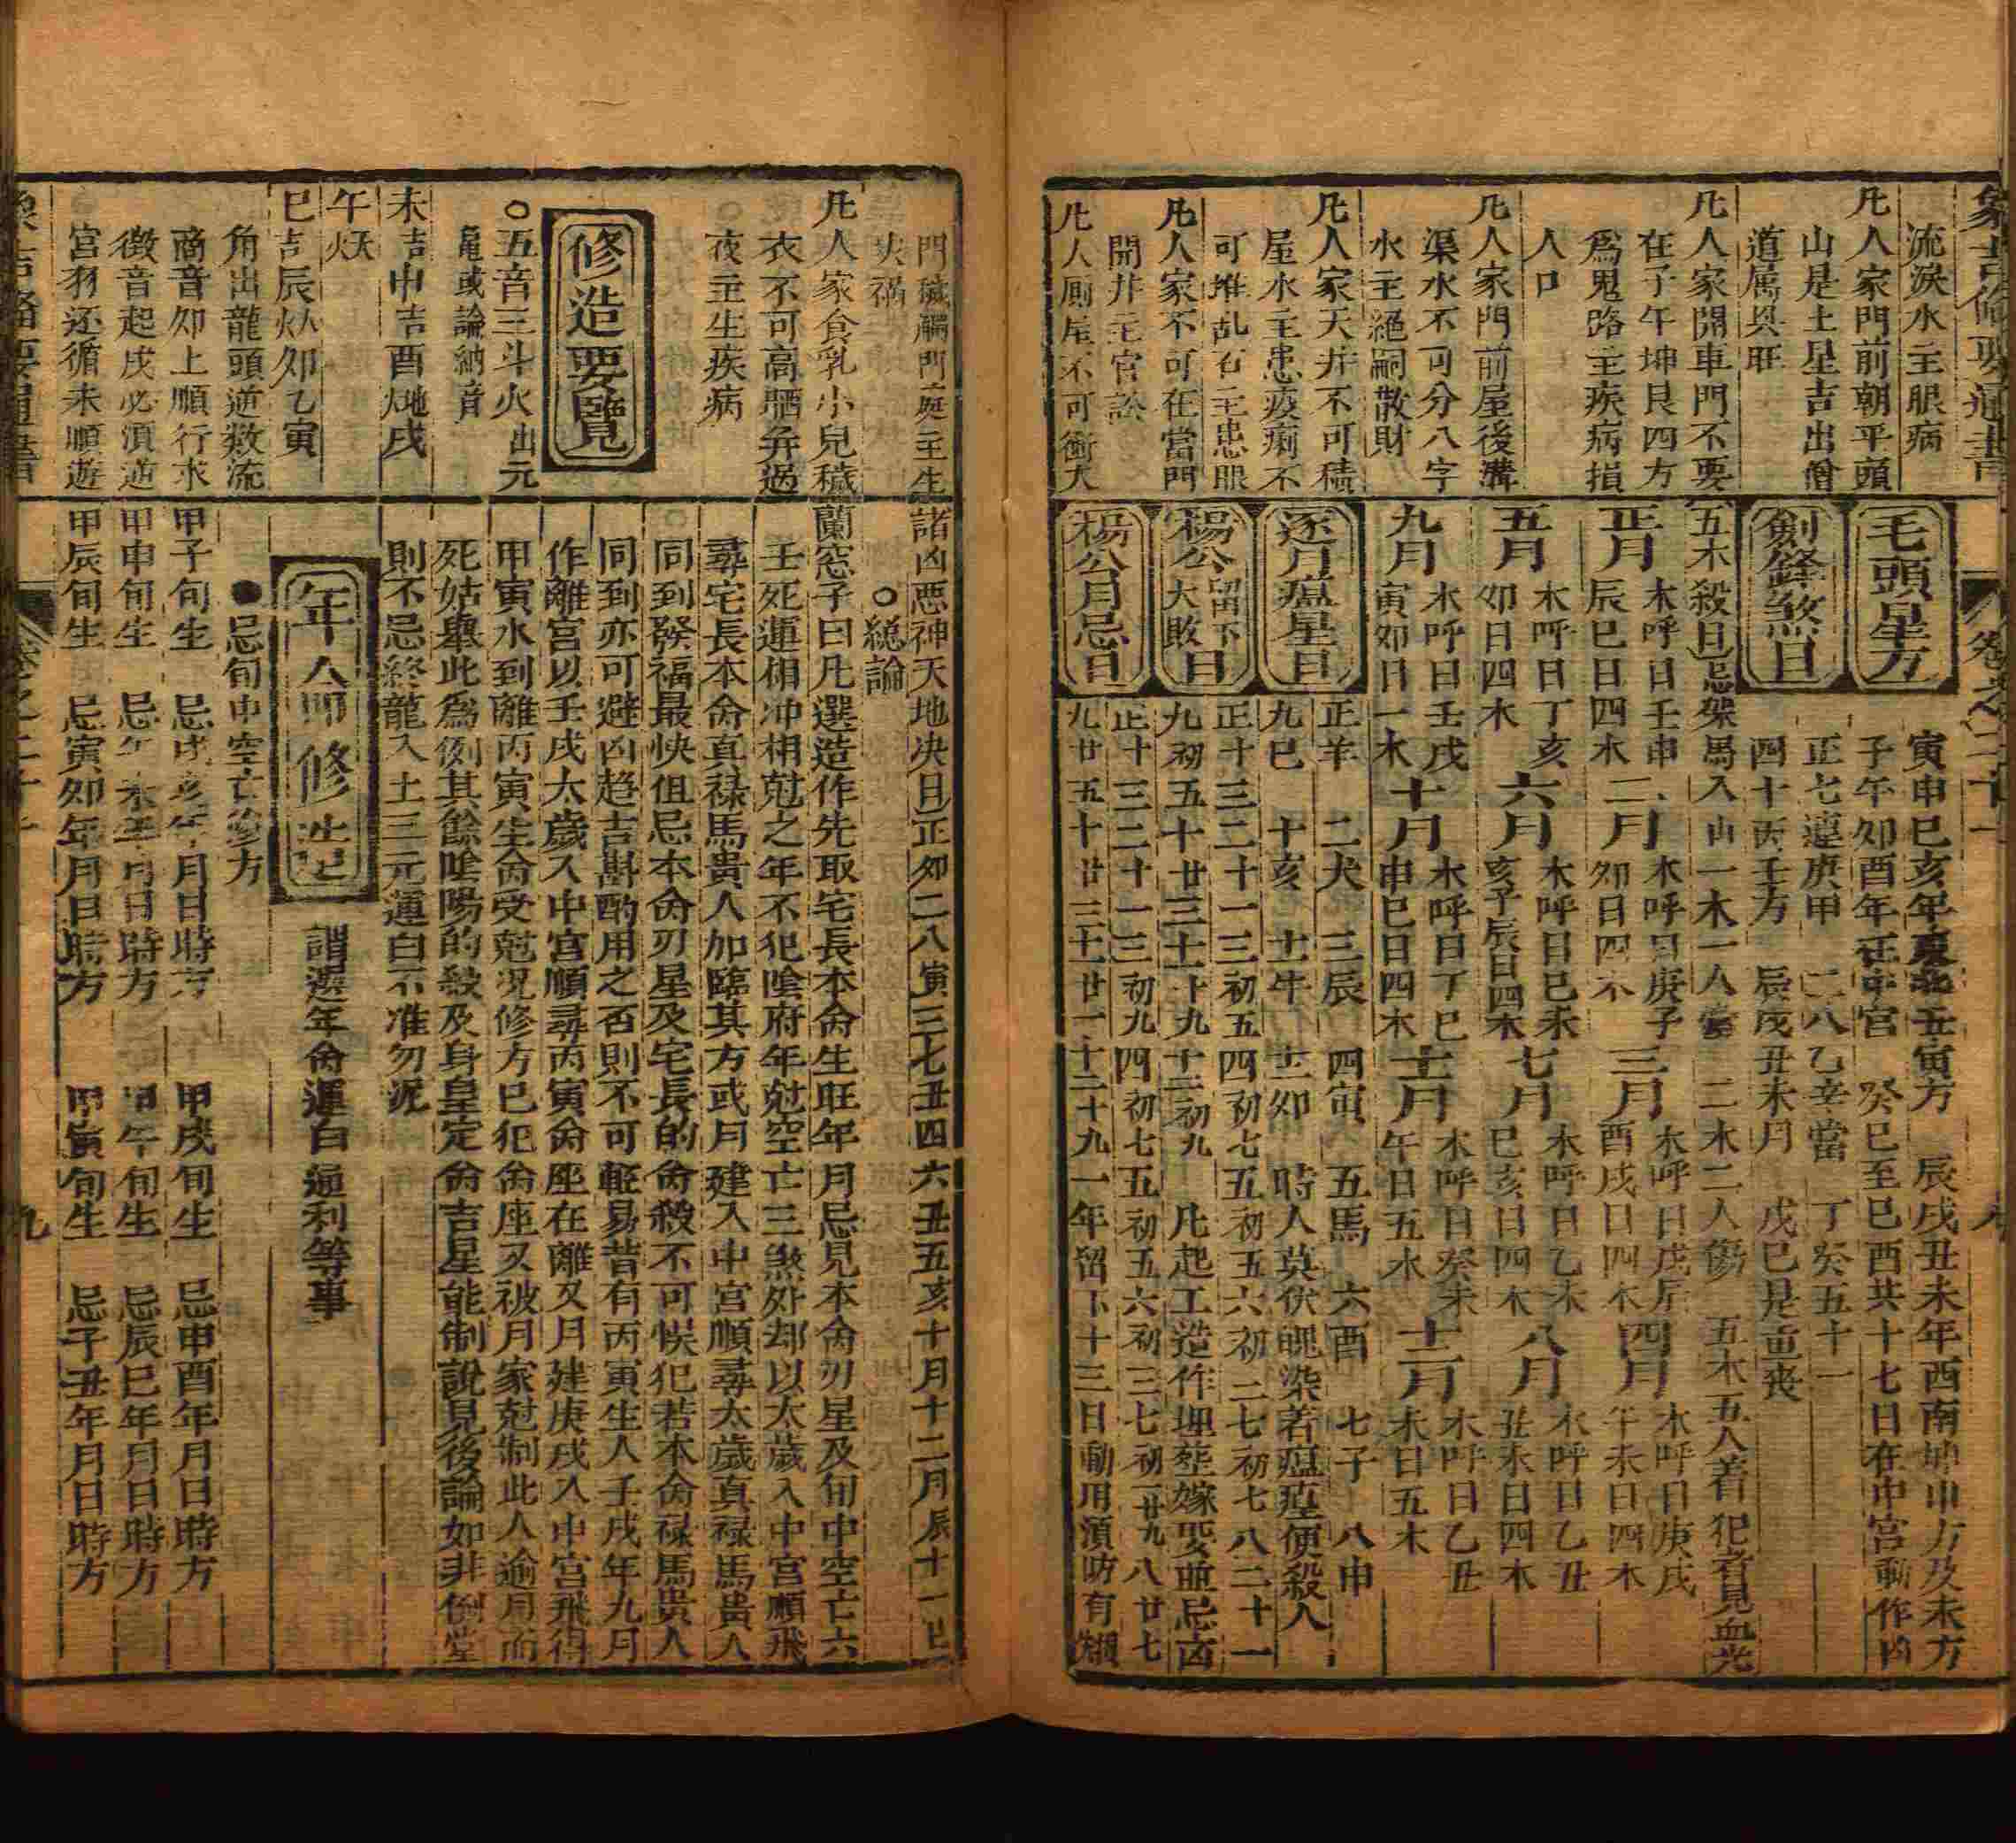 象吉備要通書
卷之二十一
流淚水主眼病
凡人家門前朝平頭
山是土星吉出僧
道属與旺
凡人家開車門不要
在子午坤艮四方
爲鬼路主疾病損
人口
凡人家門前屋後溝
渠水不可分八字
水主絕嗣散財
凡人家天井不可積
屋水主患疫痢不
可堆乱石主患眼
凡人家不可在當門
開井主官訟
凡人厠屋不可衝大
毛頭星方
寅申巳亥年東北丑寅方 辰戌丑未年西南坤申方及未方
子午夘酉年在中宮 癸巳至巳酉共十七日在中宮動作凶
劍鋒煞日
正七連庚甲 二八乙辛當 丁癸五十一
四十丙壬方 辰戌丑未月 戊巳是重喪
五木殺日忌架馬入山一木一人當 二木二人傷 五木五人着 犯者見血光
正月 木呼日壬申 辰巳日四木
二月 木呼日庚子 夘日四木
三月 木呼日戊 酉戌日四木
四月 木呼日庚戌 午未日四木
五月 木呼日丁亥 夘日四木
六月 木呼日巳未 亥子辰日四木
七月 木呼日乙未 巳亥日四木
八月 木呼日乙丑 丑未日四木
九月 木呼日壬戌 寅夘日一木
十月 木呼日丁巳 申巳日四木
十一月 木呼日癸未 午日五木
十二月 木呼日乙丑 未日五木
逐月瘟星日
正羊 二犬 三辰 四寅 五馬 六酉 七子 八申
九巳 十亥 十一牛 十二夘 時人莫伏魄染着瘟瘟便殺人
楊公留下大敗日
正十三二十一三初五四初七五初五六初二七初七八二十一
九初五十廿三十一十九十二初九 凡起工造作埋塟嫁娶並忌凶
楊公月忌日
正十三二十一三初九四初七五初五六初三七初一廿九八廿七
九廿五十廿三十一廿一十二十九一年留下十三日動用湏防有禍
門穢觸門庭主生
災禍
凡人家食乳小兒穢
衣不可高晒并過
夜主生疾病
修造要覽
○五音三斗火出元
亀或論納音
未吉申吉酉地火戌
午天火
巳吉辰人火夘乙寅
角出龍頭逆数流
商音夘上順行求
徴音起戌必湏逆
宮羽还循未順遊
諸凶惡神天地决日正夘二八寅三七丑四六丑五亥十月十二月辰十一巳
○總論
蘭窓子曰凡選造作先取宅長本命生旺年月忌見本命刃星及旬中空亡六
壬死運相冲相尅之年不犯陰府年尅空亡三煞处却以太歲入中宮順飛
尋宅長本命真禄馬貴人加臨其方或月建入中宮順尋太歲真禄馬貴人
同到發福最快但忌本命刃星及宅長的命殺不可悮犯若本命禄馬貴人
同到亦可避凶趋吉斟酌用之否則不可輕易昔有丙寅生人壬戌年九月
作離宮以壬戌太歲入中宮順尋丙寅命座在離又月建庚戌入中宮飛得
甲寅水到離丙寅生命受尅况修方巳犯命座又被月家尅制此人逾月而
死姑舉此爲例其餘陰陽的殺及身皇定命吉星能制說見後論如非倒堂
則不忌終龍入土三元運白不准勿泥
年命修造 謂選年命運白通利等事
●忌旬中空亡修方
甲子旬生 忌戌亥年月日時方 甲戌旬生 忌申酉年月日時方
甲申旬生 忌午未年月日時方 甲午旬生 忌辰巳年月日時方
甲辰旬生 忌寅夘年月日時方 甲寅旬生 忌子丑年月日時方
九